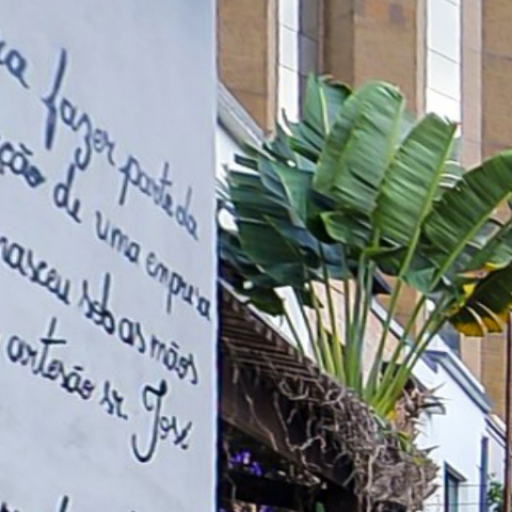 fazer parte da
de uma empresa
nasceu sob as mãos
artesão sr. José